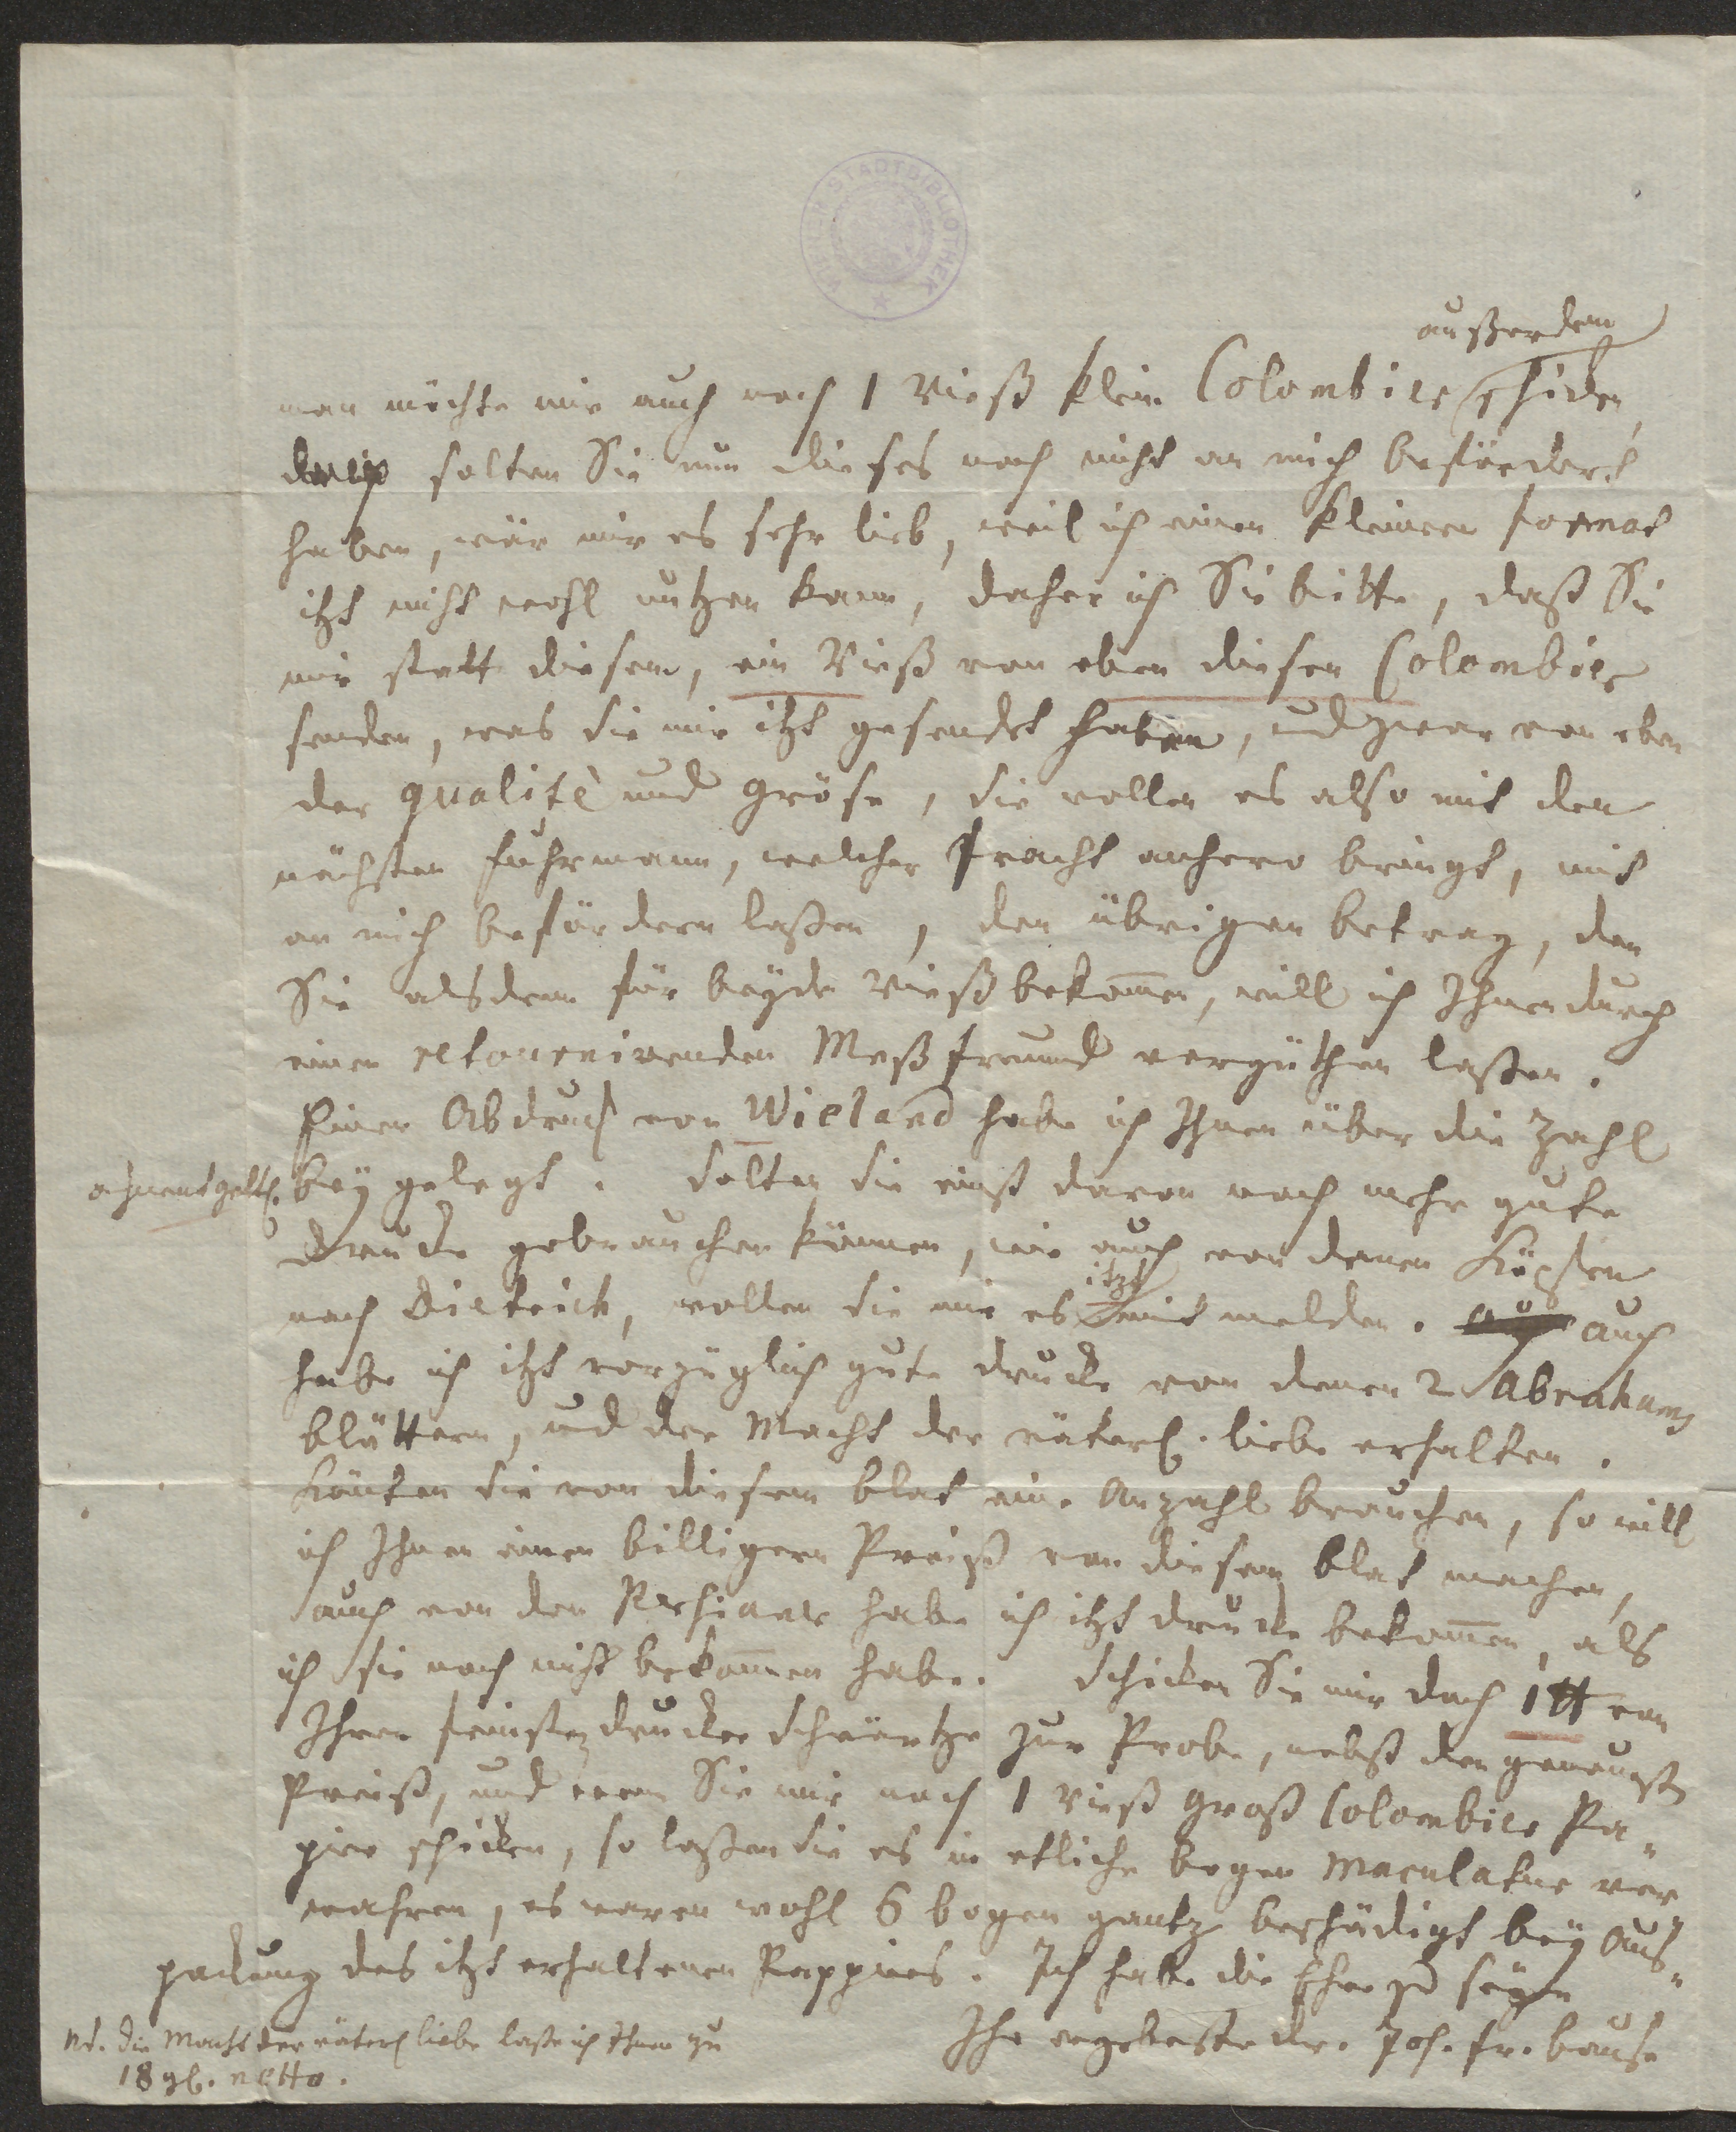 WIENER STADTBIBLIOTHEK
außerdem
man möchte mir auch noch 1 Rieß klein Colombier schicken,
solten Sie nun dieses noch nicht an mich befördert
haben, wär mir es sehr lieb, weil ich einen kleinern format
itzt nicht wohl nutzen kann, daher ich Sie bitte, daß Sie
mir statt diesem, ein Rieß von eben diesen Colombier
senden, was Sie mir itzt gesendet haben, und zwar von eben
der qualitè und gröse, Sie wollen es also mit den
nächsten Fuhrmann, welcher Fracht anhero bringt, mit
an mich befördern laßen, den übrigen betrag, den
Sie alsdenn für beyde Rieß bekom̄en, will ich Ihnen durch
einen retournirenden Meß freund vergüthen laßen.
Einen Abdruck von Wieland habe ich Ihnen über die Zahl
ohnentgeltl. bey gelegt. Solten Sie einst davon noch mehr gute
Drucke gebrauchen können, wie auch von denen Köpfen
itzt
nach Dietrich, wollen Sie mir es mit melden. auch auch
habe ich itzt vorzüglich gute drucke von denen 2 Abrahams
blättern, und der Macht der väterl. liebe erhalten.
Könten Sie von diesem blat eine Anzahl brauchen, so will
ich Ihnen einen billigern Preiß von diesem blat machen,
auch von den Persianer habe ich itzt drucke bekom̄en, als
ich sie noch nicht bekom̄en habe. Schicken Sie mir doch 1 ℔ von
Ihrer feinsten drucker Schwärtze zur Probe, nebst den genausten
Preiß, und wenn Sie mir noch 1 Rieß groß Colombier Pa-
pier schicken, so laßen Sie es in etliche bogen Maculatur ver-
wahren, es waren wohl 6 bogen gantz beschädigt bey Aus-
packung des itzt erhaltenen Pappiers. Ich habe die Ehre zu seyn
Ihr ergebenster dr. Joh. Fr. bause
NB. die Macht der väterl liebe laße ich Ihnen zu
18 gl. netto.